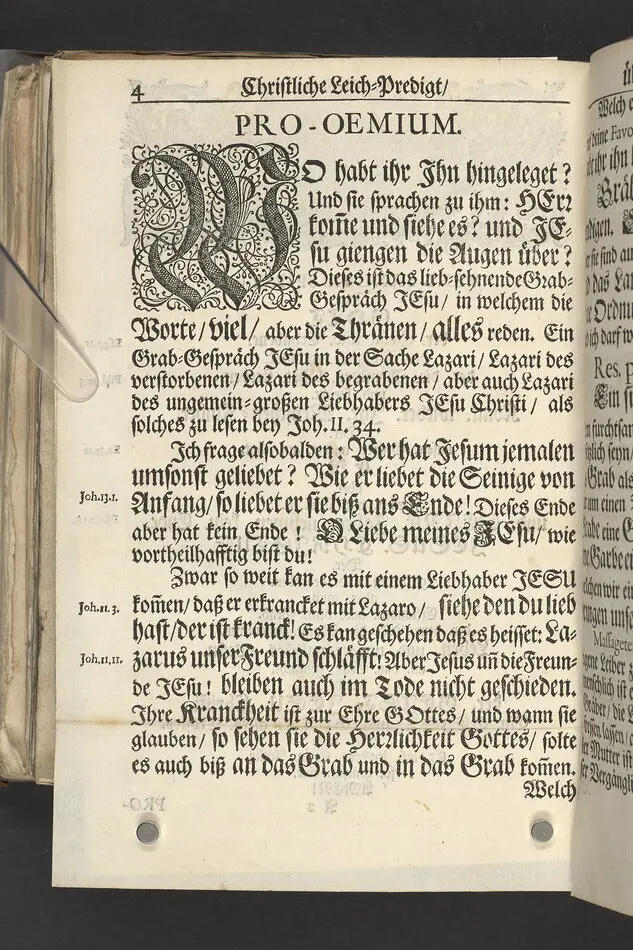 4
Christliche Leich-Predigt/
PRO-OEMIUM.
WO habt ihr Ihn hingeleget?
Und sie sprachen zu ihm: HErr
kom̃e und siehe es? und JE-
su giengen die Augen über?
Dieses ist das lieb-sehnende Grab-
Gespräch JEsu/ in welchem die
Worte/ viel/ aber die Thränen/ alles reden. Ein
Grab-Gespräch JEsu in der Sache Lazari/ Lazari des
verstorbenen/ Lazari des begrabenen/ aber auch Lazari
des ungemein-großen Liebhabers JEsu Christi/ als
solches zu lesen bey Joh. 11. 34.
Ich frage alsobalden: Wer hat Jesum jemalen
umsonst geliebet? Wie er liebet die Seinige von
Joh.13.1.
Anfang/ so liebet er sie biß ans Ende! Dieses Ende
aber hat kein Ende! O Liebe meines JEsu/ wie
vortheilhafftig bist du!
Zwar so weit kan es mit einem Liebhaber JESU
Joh.11.3.
kom̃en/ daß er erkrancket mit Lazaro/ siehe den du lieb
hast/ der ist kranck! Es kan geschehen daß es heisset: La-
Joh.11,11.
zarus unser Freund schläfft! Aber Jesus uñ die Freun-
de JEsu! bleiben auch im Tode nicht geschieden.
Ihre Kranckheit ist zur Ehre GOttes/ und wann sie
glauben/ so sehen sie die Herrlichkeit Gottes/ solte
es auch biß an das Grab und in das Grab kom̃en.
Welch